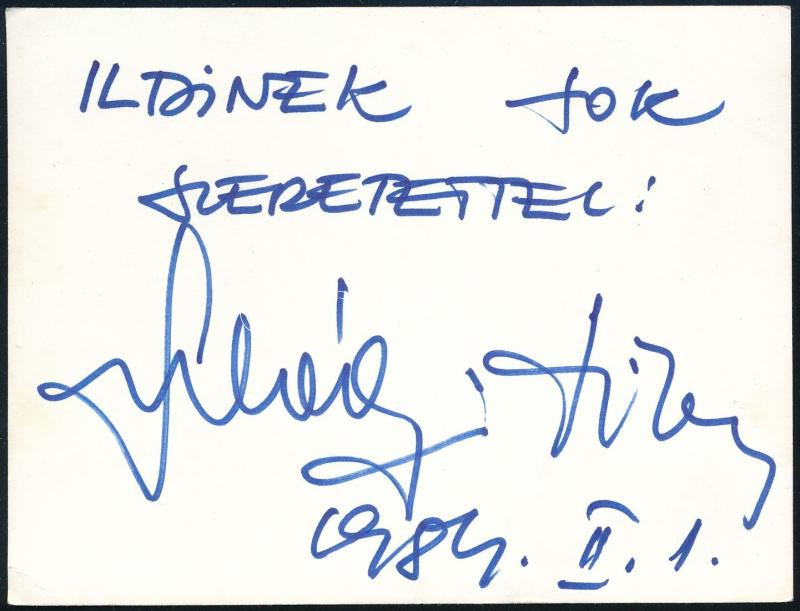 ILDINEK SOK
SZERETETTEL:
1984. II. 1.